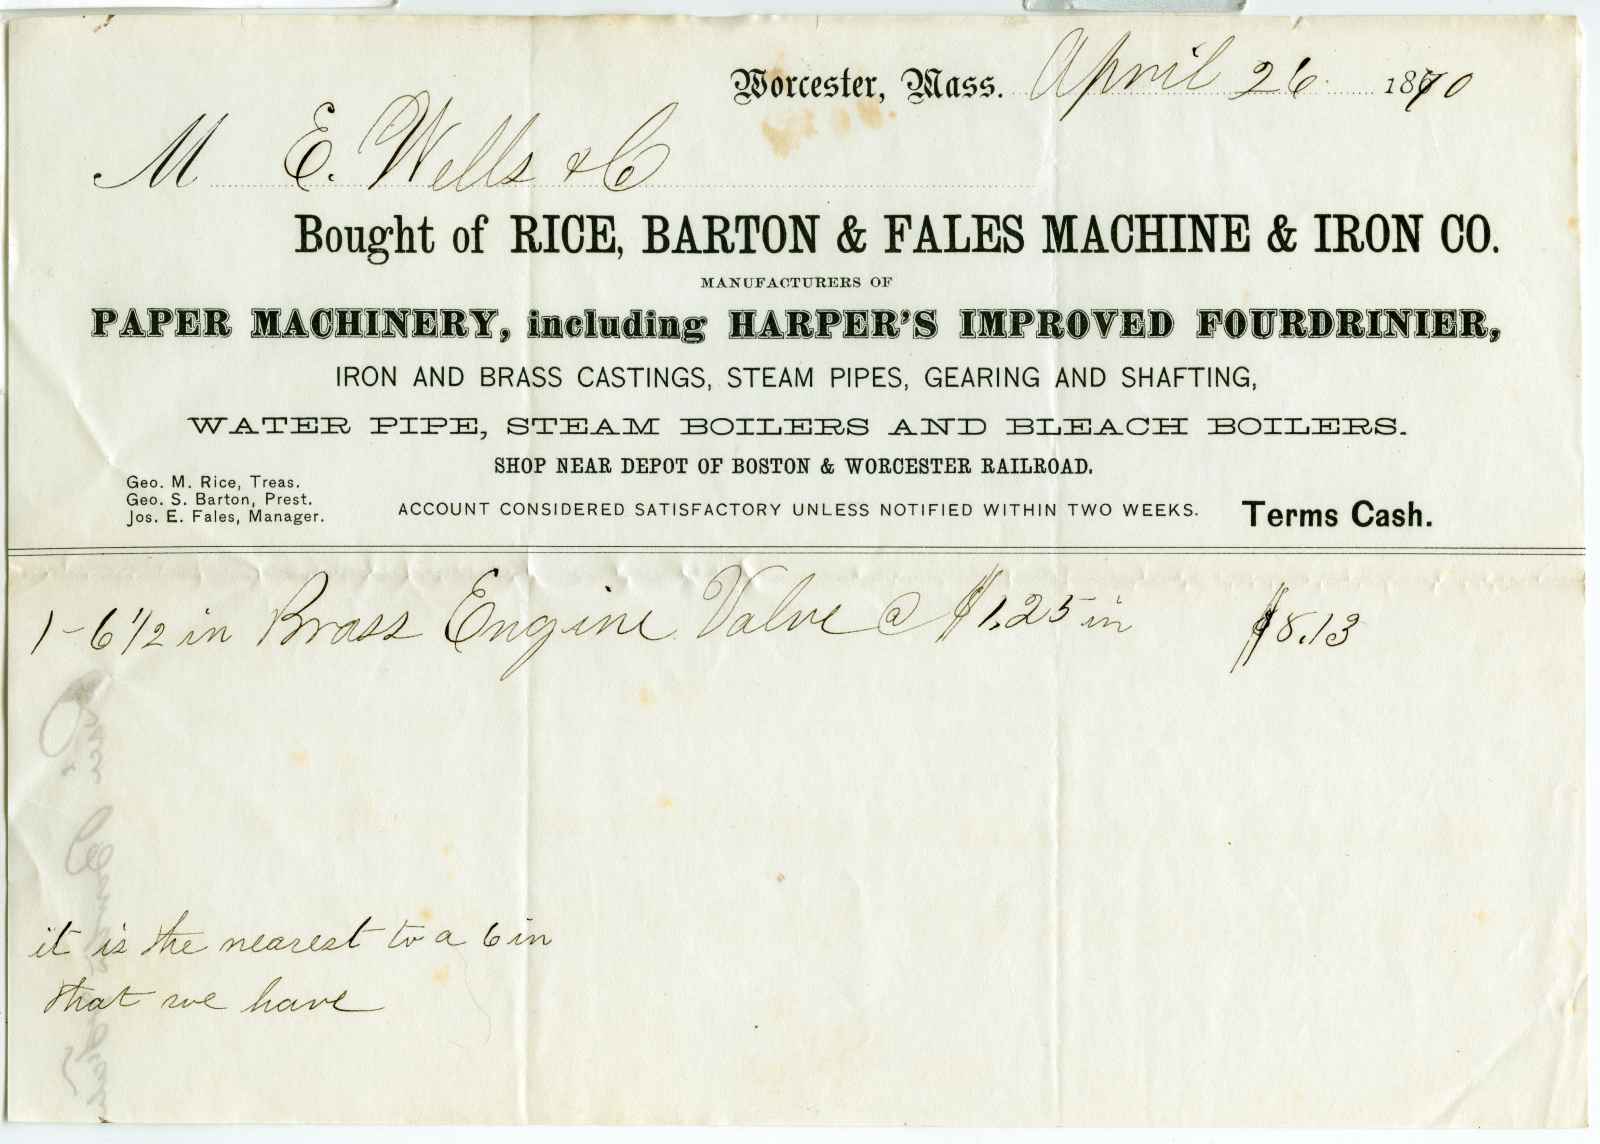 Worcester, Mass. April 26 1870
M E. Wells & Co
Bought of RICE, BARTON & FALES MACHINE & IRON CO.
MANUFACTURERS OF
PAPER MACHINERY, including HARPER'S IMPROVED FOURDRINIER,
IRON AND BRASS CASTINGS, STEAM PIPES, GEARING AND SHAFTING,
WATER PIPE, STEAM BOILERS AND BLEACH BOILERS.
SHOP NEAR DEPOT OF BOSTON & WORCESTER RAILROAD.
Geo. M. Rice, Treas.
Geo. S. Barton, Prest.
Jos. E. Fales, Manager.
ACCOUNT CONSIDERED SATISFACTORY UNLESS NOTIFIED WITHIN TWO WEEKS.
Terms Cash.
1-6 1/2 in Brass Engine Valve @ $1.25 in $8.13
it is the nearest to a 6 in
that we have